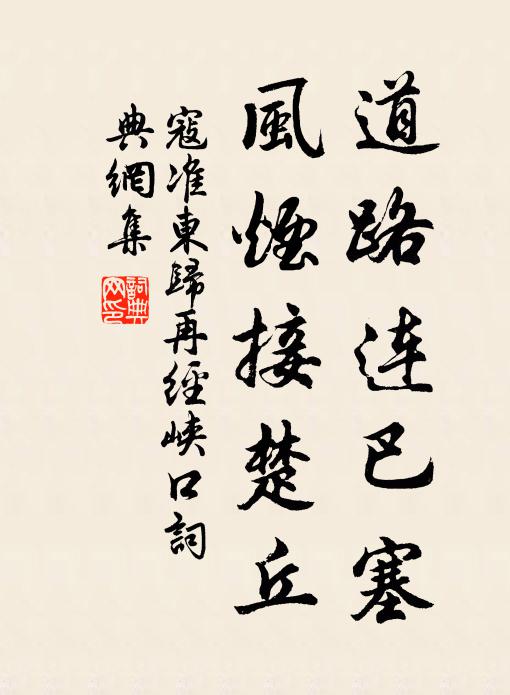 道路连巴塞
風煙接楚丘
寇准東歸再經峽口詞
典網集
詞典
网印